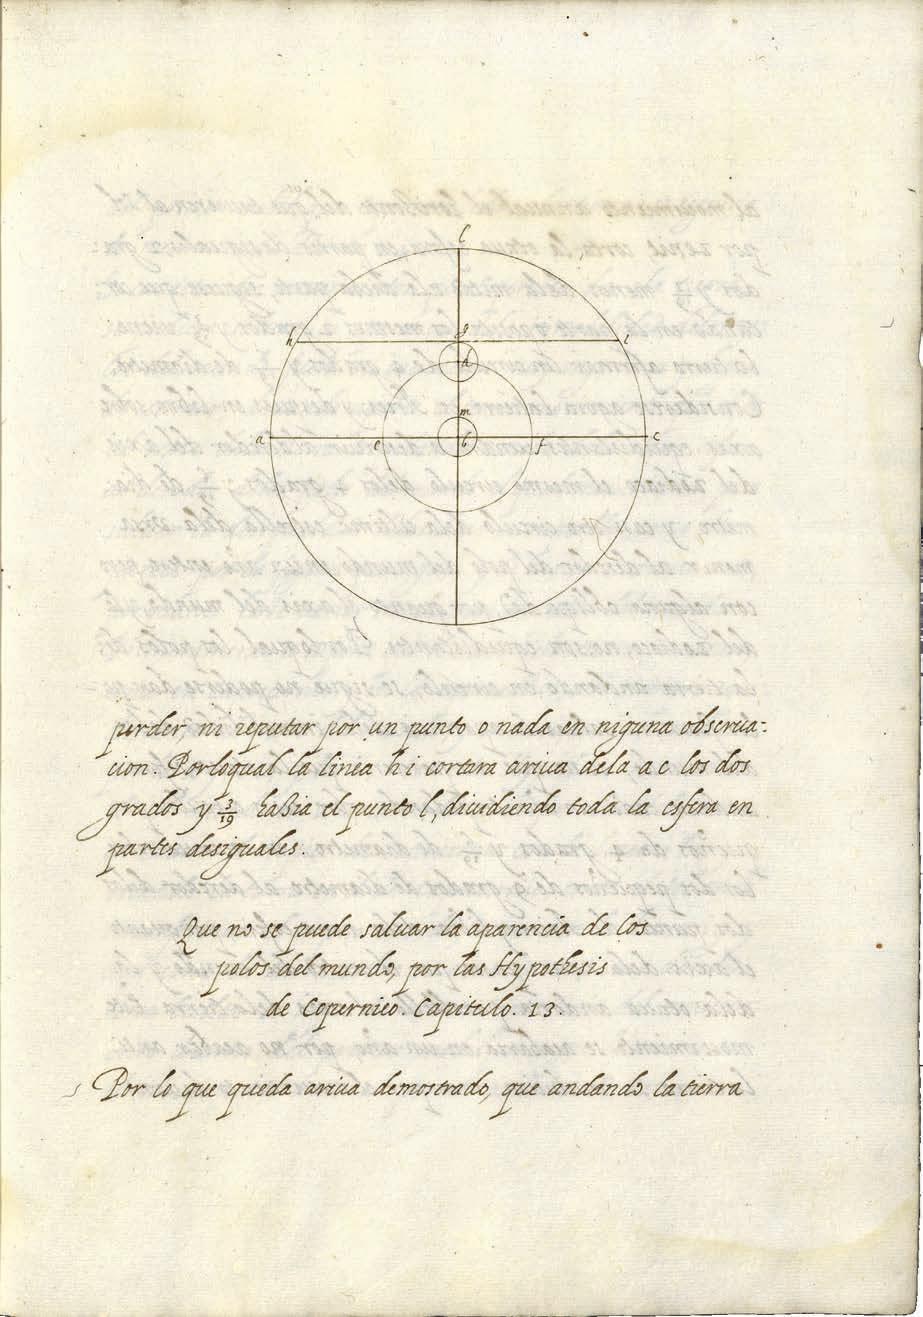 l
g
h i
d
m
a e b f c
perder ni reputar por un punto o nada en niguna obserua-
cion. Porloqual la linea h i cortara ariua dela a c los dos
grados y 3/19 haßia el punto l, diuidiendo toda la esfera en
partes desiguales.
Que no se puede saluar la aparencia de los
polos del mundo, por las Hypothesis
de Copernico. Capitulo. 13.
Por lo que queda ariua demostrado, que andando la tierra